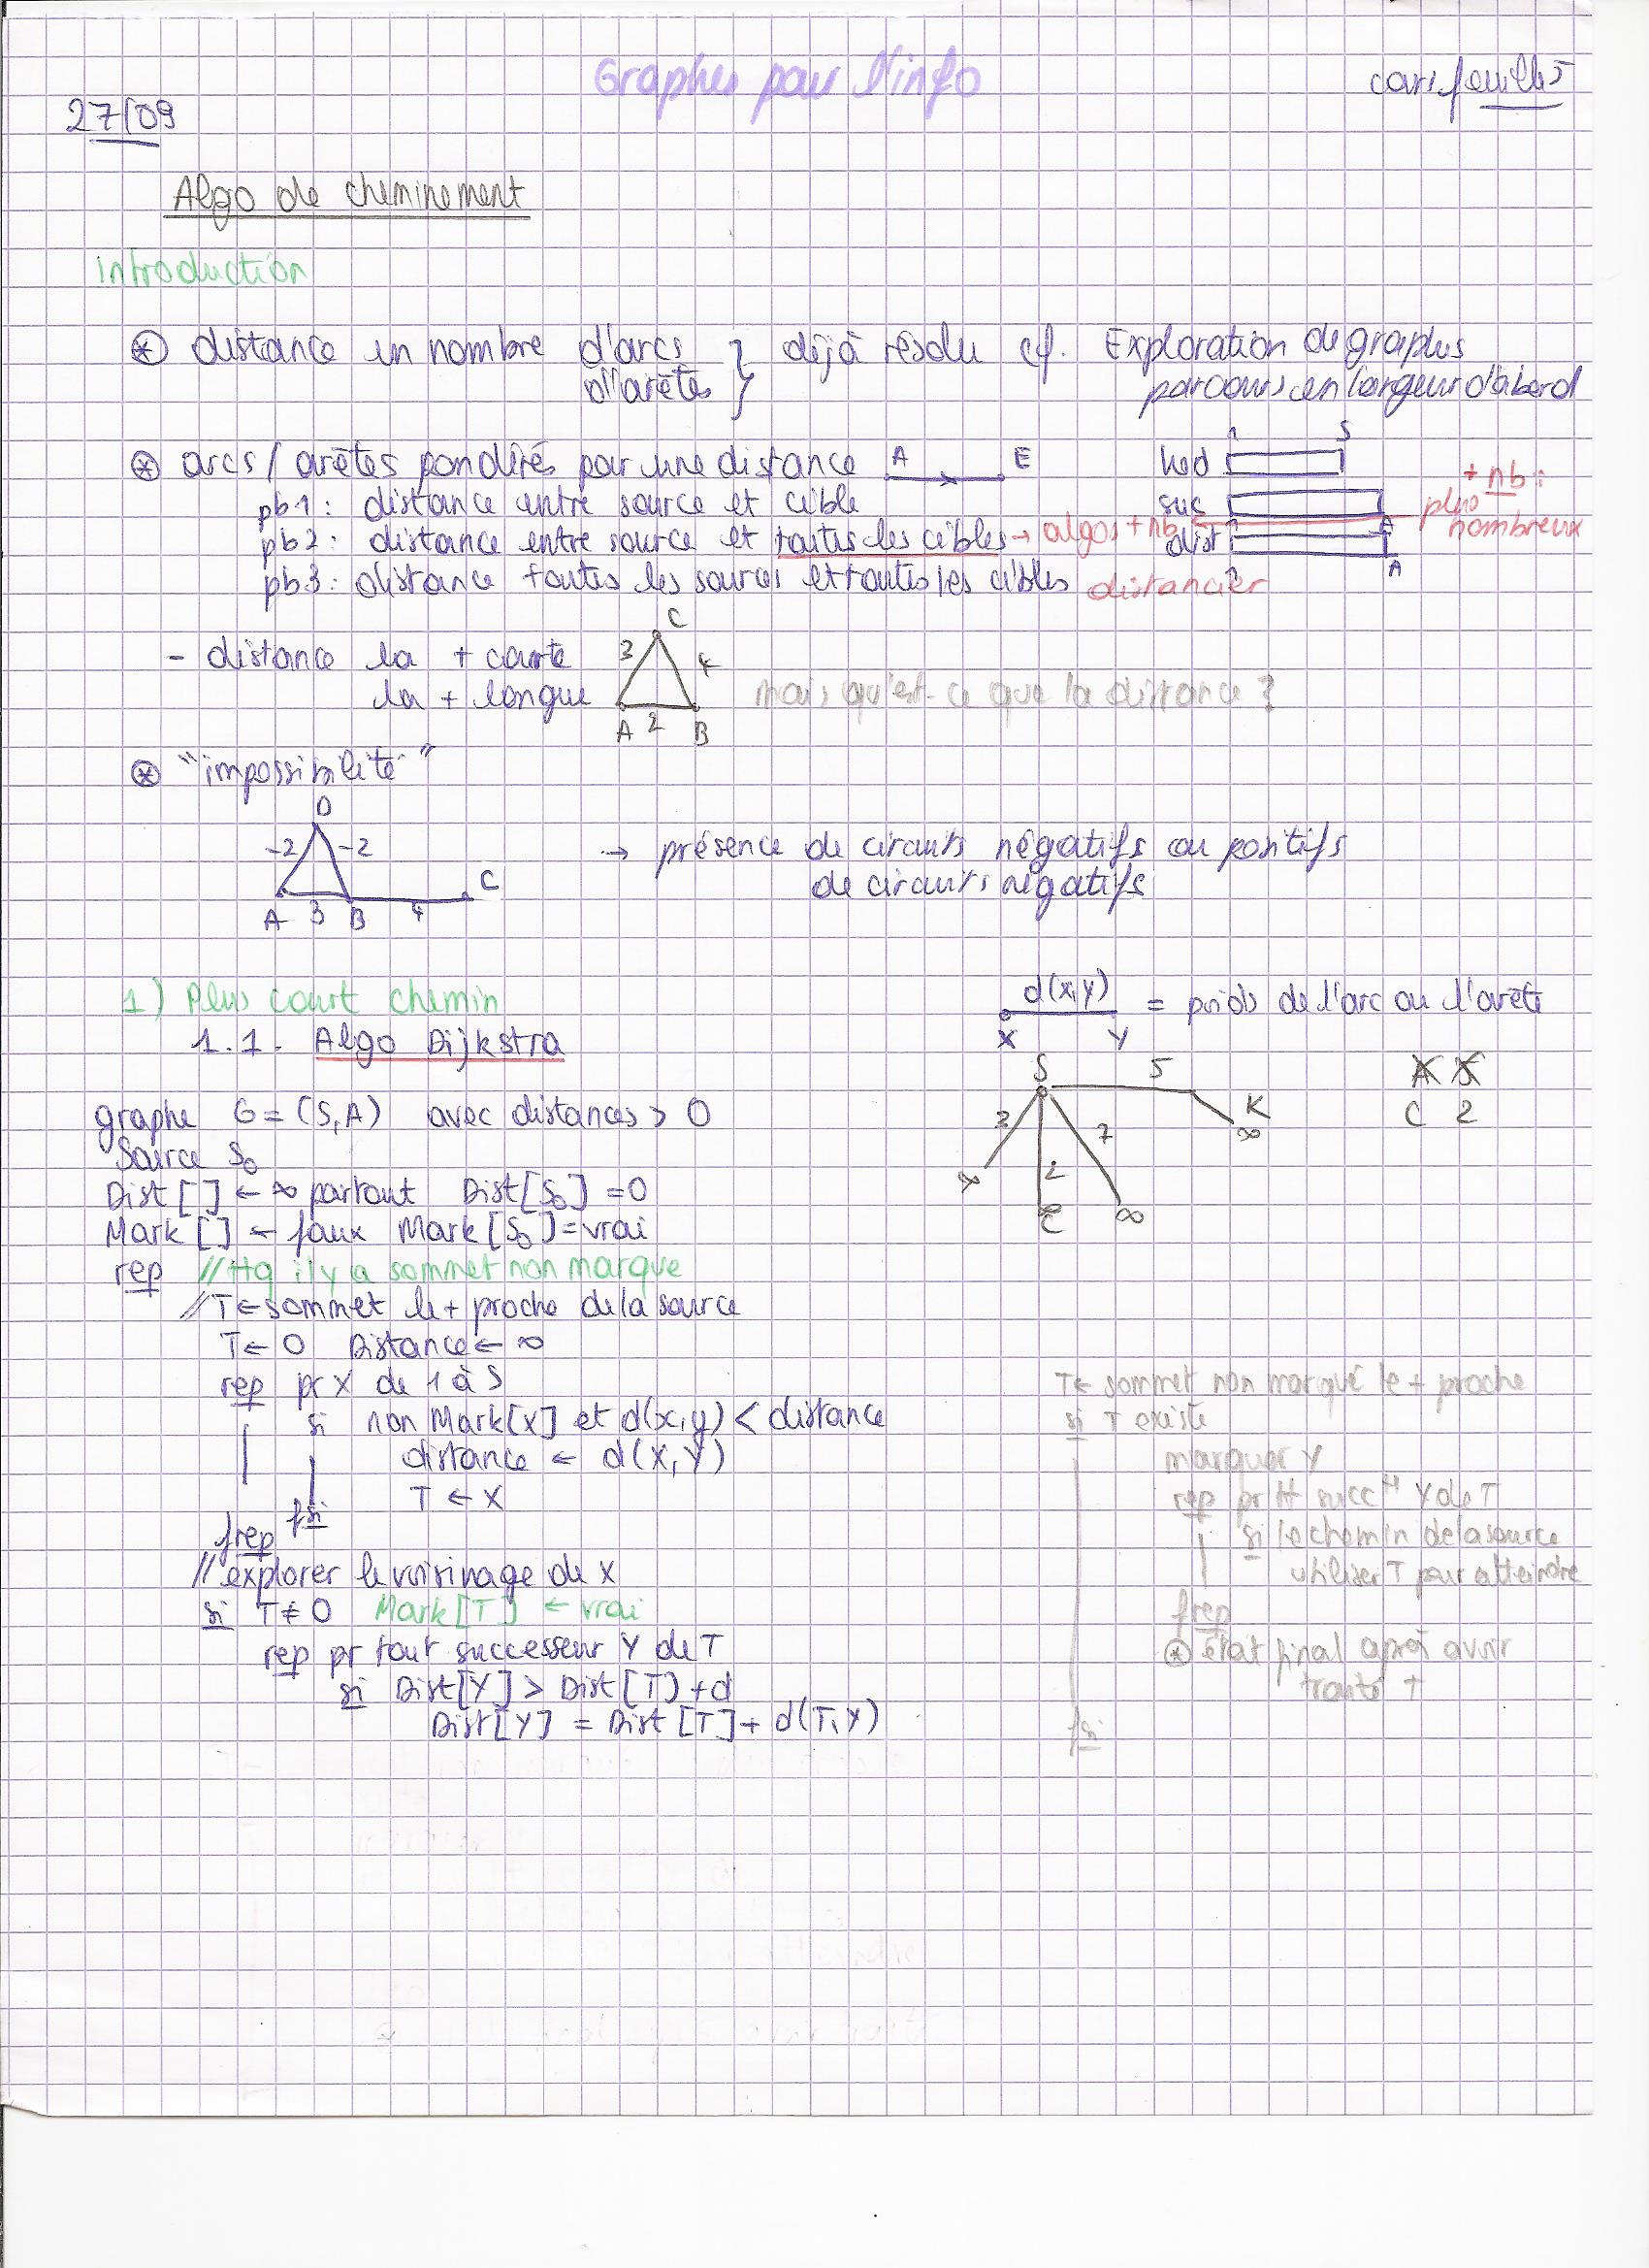 Graphes pour l'info
27/09
Algo de cheminement
Introduction
⊛ distance en nombre d'arcs } déjà résolu cf. Exploration de graphes
d'arêtes parcours en largeur d'abord
⊛ arcs / arêtes pondérés par une distance A E
pb1: distance entre source et cible
pb2: distance entre source et toutes les cibles → algos + nb
pb3: distance toutes les sources et toutes les cibles distancier
1 S
suc
dist
A
+ nb :
plus nombreux
- distance la + courte
la + longue
C 3 4 A 2 B
mais qu'est-ce que la distance ?
⊛ "impossibilité"
D -2 -2 A 3 B 4 C
→ présence de circuits négatifs ou positifs
de circuits négatifs
1) Plus court chemin
d(x,y) = poids de l'arc ou l'arête
X Y
1.1. Algo Dijkstra
S 5 K ∞
3 2 C 7 ∞
A 5
C 2
graphe G = (S,A) avec distances > 0
Source S0
Dist[] ← ∞ partout Dist[S0] = 0
Mark[] ← faux Mark[S0] = vrai
rep // tq il y a sommet non marqué
// T ← sommet le + proche de la source
T ← 0 Distance ← ∞
rep pr X de 1 à S
si non Mark[X] et d(x,y) < distance
distance ← d(X,Y)
T ← X
fsi
frep
// explorer le voisinage de X
si T ≠ 0 Mark[T] ← vrai
rep pr tout successeur Y de T
si Dist[Y] > Dist[T] + d
Dist[Y] = Dist[T] + d(T,Y)
T ← sommet non marqué le + proche
si T existe
marquer Y
rep pr tt Y de T
si le chemin de la source
utiliser T pour atteindre
frep
⊛ état final après avoir
traité T
fsi